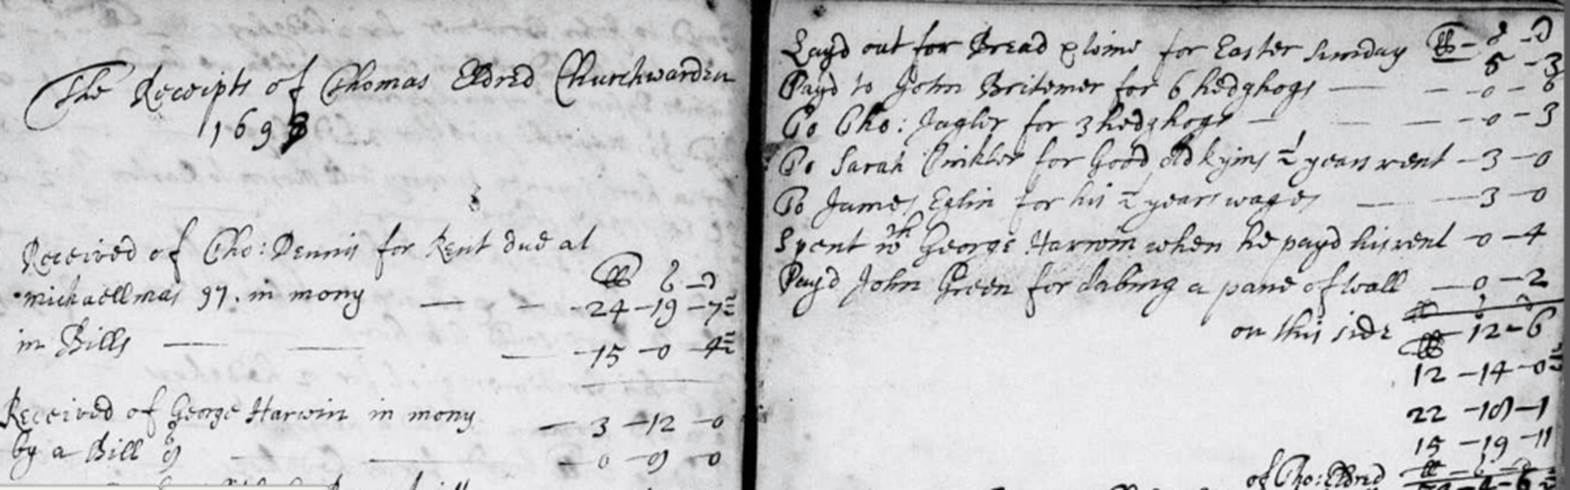 The Receipts of Thomas Eldred Churchwarden
1698
Received of Tho: Dennis for Rent due at
michaellmas 97. in mony — — 24 – 19 – 7
in Bills — — — 15 – 0 – 4
Received of George Harwin in mony — 3 – 12 – 0
by a Bill of — — 0 – 9 – 0
Layd out for Bread & wine for Easter Sunday ll – s – d
5 – 3
Payd to John Britemer for 6 hedghogs — – 0 – 6
To Tho: Jagler for 3 hedghogs — — – 0 – 3
To Sarah Tinkler for Good old kyms ½ years rent – 3 – 0
To James Eglin for his ½ years wages — 3 – 0
Spent wth George Harwin when he payd his rent – 0 – 4
Payd John Green for dabing a pane of wall — 0 – 2
on this side 12 – 6
12 – 14 – 0
22 – 10 – 1
15 – 19 – 11
of Tho: Eldred